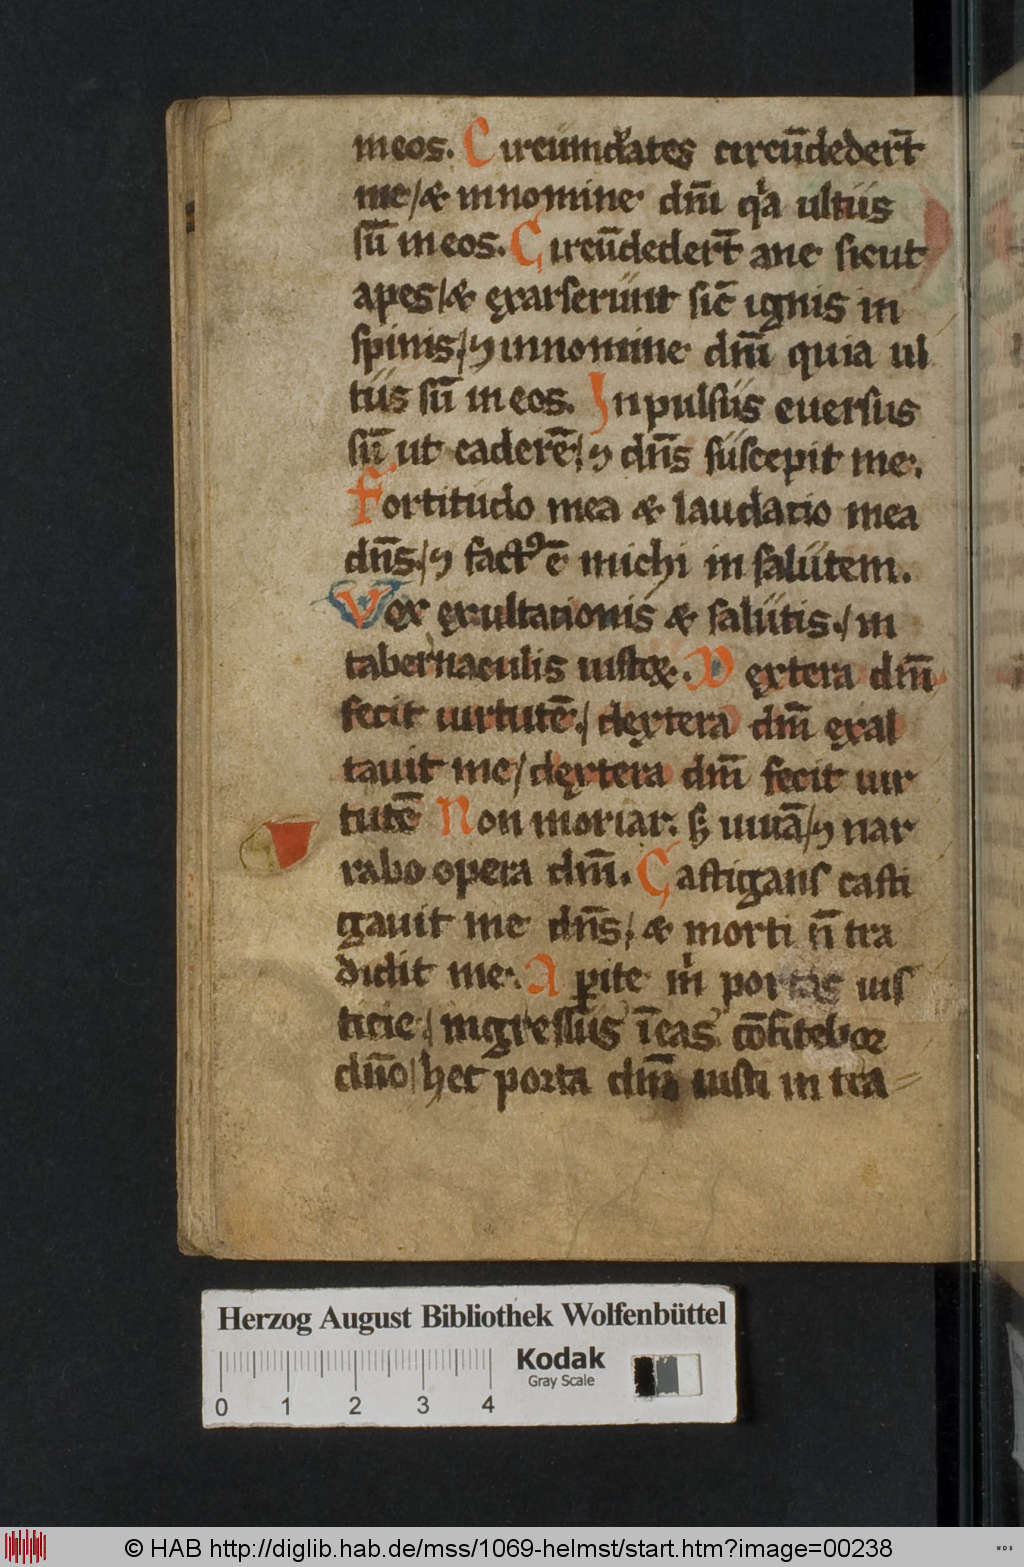 in eos. Circumdates circūdederūt
me / & in nomine dn̄i qͥa ultus
sū in eos. Circūdederūt me sicut
apes / & exarserunt sic̄ ignis in
spinis / ⁊ in nomine dn̄i quia ul
tus sū in eos. Inpulsus euersus
sū ut caderē / ⁊ dn̄s suscepit me.
Fortitudo mea & laudatio mea
dn̄s / ⁊ factꝰ ē michi in salutem.
Vox exultationis & salutis / in
tabernaculis iustoꝝ. Dextera dn̄i
fecit uirtutē / dextera dn̄i exal
tauit me / dextera dn̄i fecit uir
tutē Non moriar. s; uiuā / ⁊ nar
rabo opera dn̄i. Castigans casti
gauit me dn̄s / & morti n̄ tra
didit me. Aperite m̍ portas ius
ticie / ingressus ī eas cōfitebor
dn̄o / hec porta dn̄i iusti in tra=
Herzog August Bibliothek Wolfenbüttel
Kodak
Gray Scale
0 1 2 3 4
© HAB http://diglib.hab.de/mss/1069-helmst/start.htm?image=00238